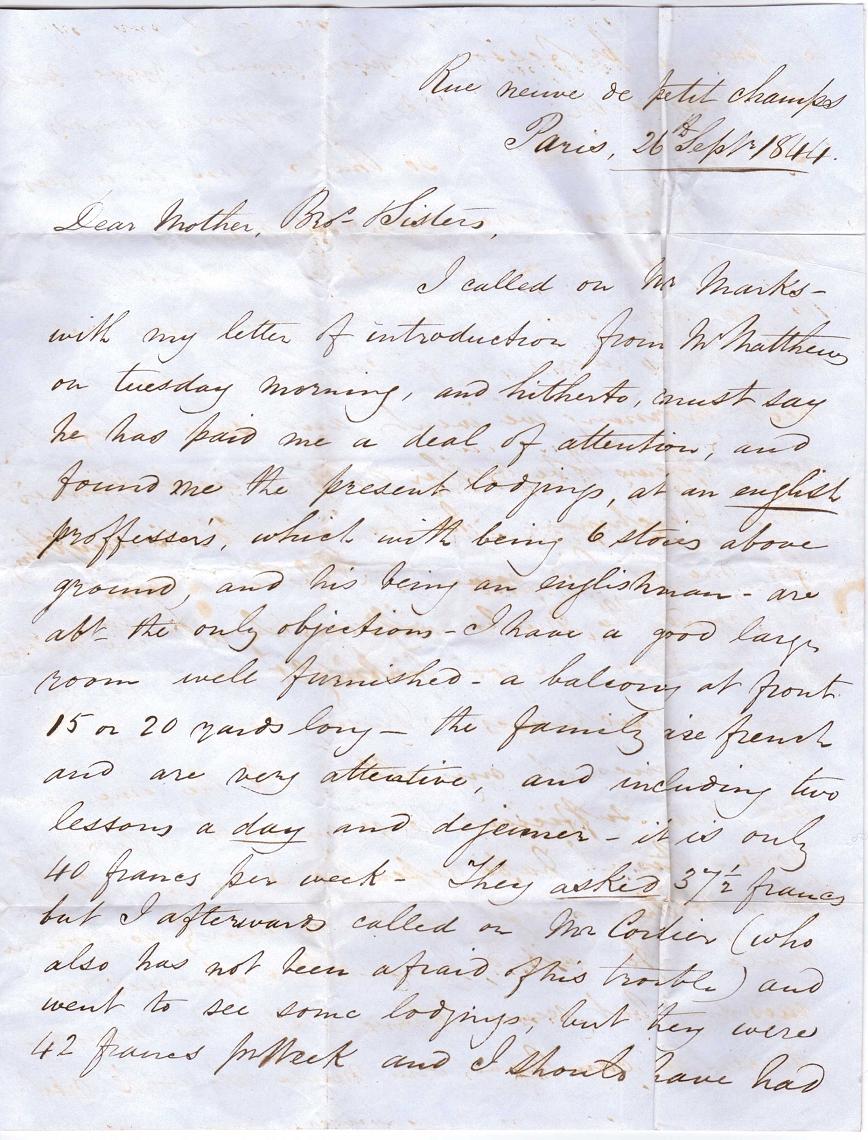 Rue neuve de petit champs
Paris, 26th Septr 1844.
Dear Mother, Bros Sisters,
I called on Mr Marks-
with my letter of introduction from Mr Matthews
on tuesday morning, and hitherto, must say
he has paid me a deal of attention, and
found me the present lodgings, at an english
proffessers, which with being 6 stories above
ground, and his being an englishman - are
abt the only objections - I have a good large
room well furnished - a balcony at front
15 or 20 yards long - the family are french
and are very attentive, and including two
lessons a day and dejeuner - it is only
40 francs per week - They asked 37½ francs
but I afterwards called on Mr Cordier (who
also has not been afraid of his trouble) and
went to see some lodgings, but they were
42 francs pr Week and I should have had